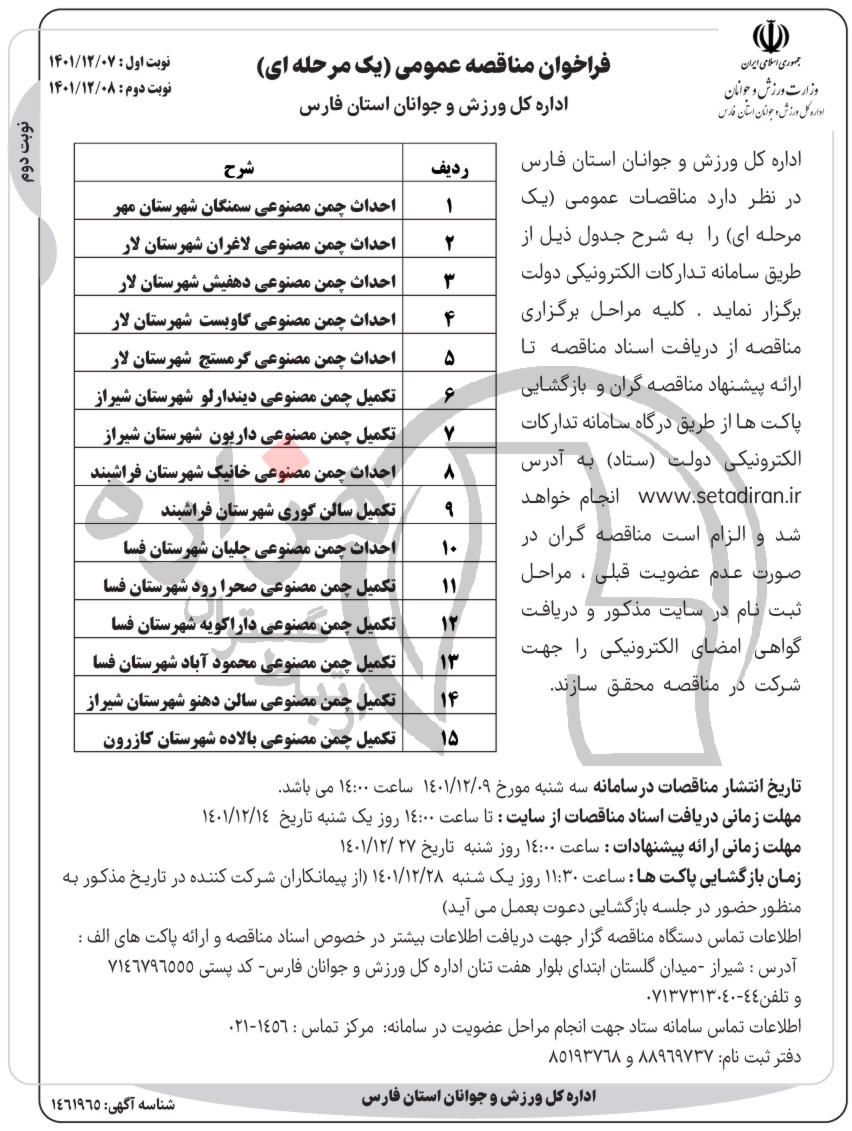 جمهوری اسلامی ایران
وزارت ورزش و جوانان
اداره کل ورزش و جوانان استان فارس
فراخوان مناقصه عمومی (یک مرحله ای)
اداره کل ورزش و جوانان استان فارس
نوبت اول : ۱۴۰۱/۱۲/۰۷
نوبت دوم : ۱۴۰۱/۱۲/۰۸
نوبت دوم
اداره کل ورزش و جوانان استان فارس
در نظر دارد مناقصات عمومی (یک
مرحله ای) را به شرح جدول ذیل از
طریق سامانه تدارکات الکترونیکی دولت
برگزار نماید . کلیه مراحل برگزاری
مناقصه از دریافت اسناد مناقصه تا
ارائه پیشنهاد مناقصه گران و بازگشایی
پاکت ها از طریق درگاه سامانه تدارکات
الکترونیکی دولت (ستاد) به آدرس
www.setadiran.ir انجام خواهد
شد و الزام است مناقصه گران در
صورت عدم عضویت قبلی ، مراحل
ثبت نام در سایت مذکور و دریافت
گواهی امضای الکترونیکی را جهت
شرکت در مناقصه محقق سازند.
ردیف شرح
۱ احداث چمن مصنوعی سمنگان شهرستان مهر
۲ احداث چمن مصنوعی لاغران شهرستان لار
۳ احداث چمن مصنوعی دهفیش شهرستان لار
۴ احداث چمن مصنوعی گاوبست شهرستان لار
۵ احداث چمن مصنوعی گرمستج شهرستان لار
۶ تکمیل چمن مصنوعی دیندارلو شهرستان شیراز
۷ تکمیل چمن مصنوعی داریون شهرستان شیراز
۸ احداث چمن مصنوعی خانیک شهرستان فراشبند
۹ تکمیل سالن گوری شهرستان فراشبند
۱۰ احداث چمن مصنوعی جلیان شهرستان فسا
۱۱ تکمیل چمن مصنوعی صحرا رود شهرستان فسا
۱۲ تکمیل چمن مصنوعی داراکویه شهرستان فسا
۱۳ تکمیل چمن مصنوعی محمود آباد شهرستان فسا
۱۴ تکمیل چمن مصنوعی سالن دهنو شهرستان شیراز
۱۵ تکمیل چمن مصنوعی بالاده شهرستان کازرون
تاریخ انتشار مناقصات در سامانه سه شنبه مورخ ۱۴۰۱/۱۲/۰۹ ساعت ۱۴:۰۰ می باشد.
مهلت زمانی دریافت اسناد مناقصات از سایت : تا ساعت ۱۴:۰۰ روز یک شنبه تاریخ ۱۴۰۱/۱۲/۱۴
مهلت زمانی ارائه پیشنهادات : ساعت ۱۴:۰۰ روز شنبه تاریخ ۲۷ /۱۴۰۱/۱۲
زمان بازگشایی پاکت ها : ساعت ۱۱:۳۰ روز یک شنبه ۱۴۰۱/۱۲/۲۸ (از پیمانکاران شرکت کننده در تاریخ مذکور به
منظور حضور در جلسه بازگشایی دعوت بعمل می آید)
اطلاعات تماس دستگاه مناقصه گزار جهت دریافت اطلاعات بیشتر در خصوص اسناد مناقصه و ارائه پاکت های الف :
آدرس : شیراز -میدان گلستان ابتدای بلوار هفت تنان اداره کل ورزش و جوانان فارس- کد پستی ۷۱۴۶۷۹۶۵۵۵
و تلفن۴۴-۰۷۱۳۷۳۱۳۰۴۰
اطلاعات تماس سامانه ستاد جهت انجام مراحل عضویت در سامانه: مرکز تماس : ۱۴۵۶-۰۲۱
دفتر ثبت نام: ۸۸۹۶۹۷۳۷ و ۸۵۱۹۳۷۶۸
اداره کل ورزش و جوانان استان فارس
شناسه آگهی: ۱۴۶۱۹۶۵
هزاره